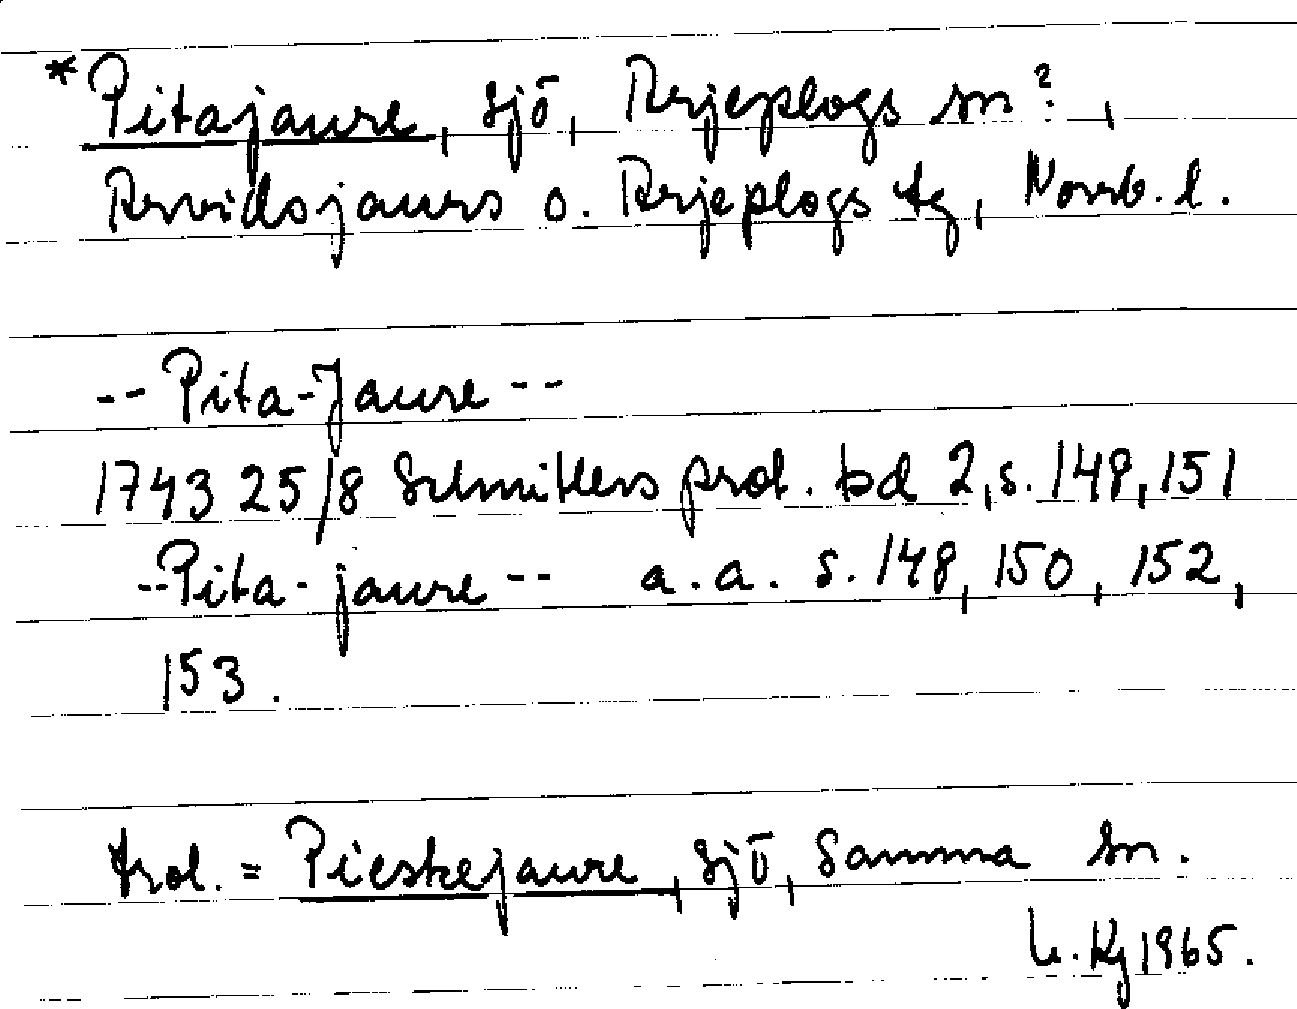 *Pitajaure, sjö, Arjeplogs sn?,
Arvidsjaurs o. Arjeplogs tg, Norrb. l.
-- Pita-Jaure --
1743 25/8 Schnitlers prot. bd 2, s. 149, 151
-- Pita-jaure -- a.a. s. 148, 150, 152,
153.
trol. = Pieskejaure, sjö, samma sn.
Kj 1965.